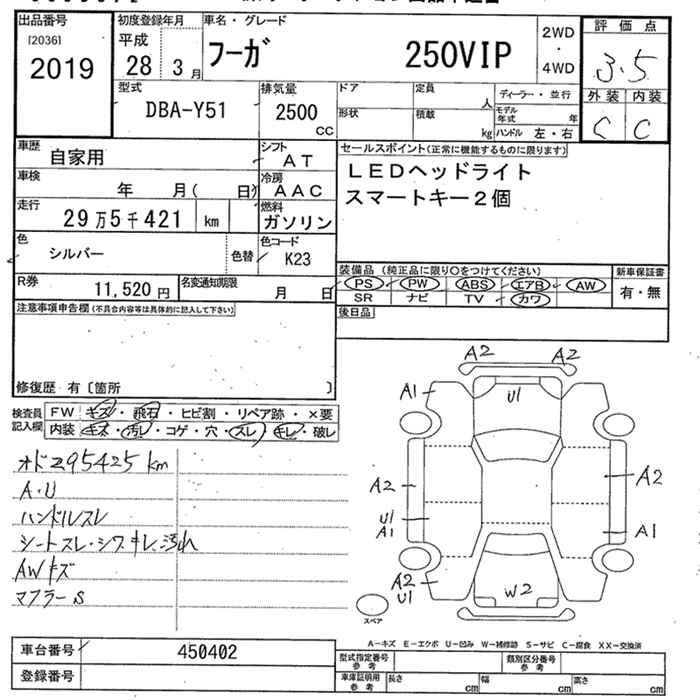 出品番号 初度登録年月 車名・グレード 評価点
[2036] 平成 フーガ 250VIP 2WD・4WD 3.5
2019 28 3月
外装 内装
C C
型式 DBA-Y51 排気量 2500 CC
ドア 定員 人 ディーラー・並行
形状 積載 kg モデル年式 年
ハンドル 左・右
車歴 自家用 シフト AT
セールスポイント(正常に機能するものに限ります)
車検 年 月( 日) 冷房 AAC
LEDヘッドライト
スマートキー2個
走行 29万5千421 km 燃料 ガソリン
色 シルバー 色替 色コード K23
R券 11,520円 名変通知期限 月 日
装備品(純正品に限り○をつけてください) 新車保証書
PS PW ABS エアB AW 有・無
SR ナビ TV カワ
後日品
注意事項申告欄(不具合内容等は具体的に記入して下さい)
修復歴 有〔箇所 〕
検査員記入欄 FW キズ・飛石・ヒビ割・リペア跡・×要
内装 キズ・汚レ・コゲ・穴・スレ・キレ・破レ
オド295425km
A・U
ハンドルスレ
シートスレ・シワ キレ、汚れ
AWキズ
マフラーS
A2 A2
A1 U1
A2 A2
U1
A1 A1
A2
U1 W2
スペア
A-キズ E-エクボ U-凹み W-補修跡 S-サビ C-腐食 XX-交換済
車台番号 450402
登録番号
型式指定番号参考 類別区分番号参考
車庫証明用参考 長さ cm 幅 cm 高さ cm